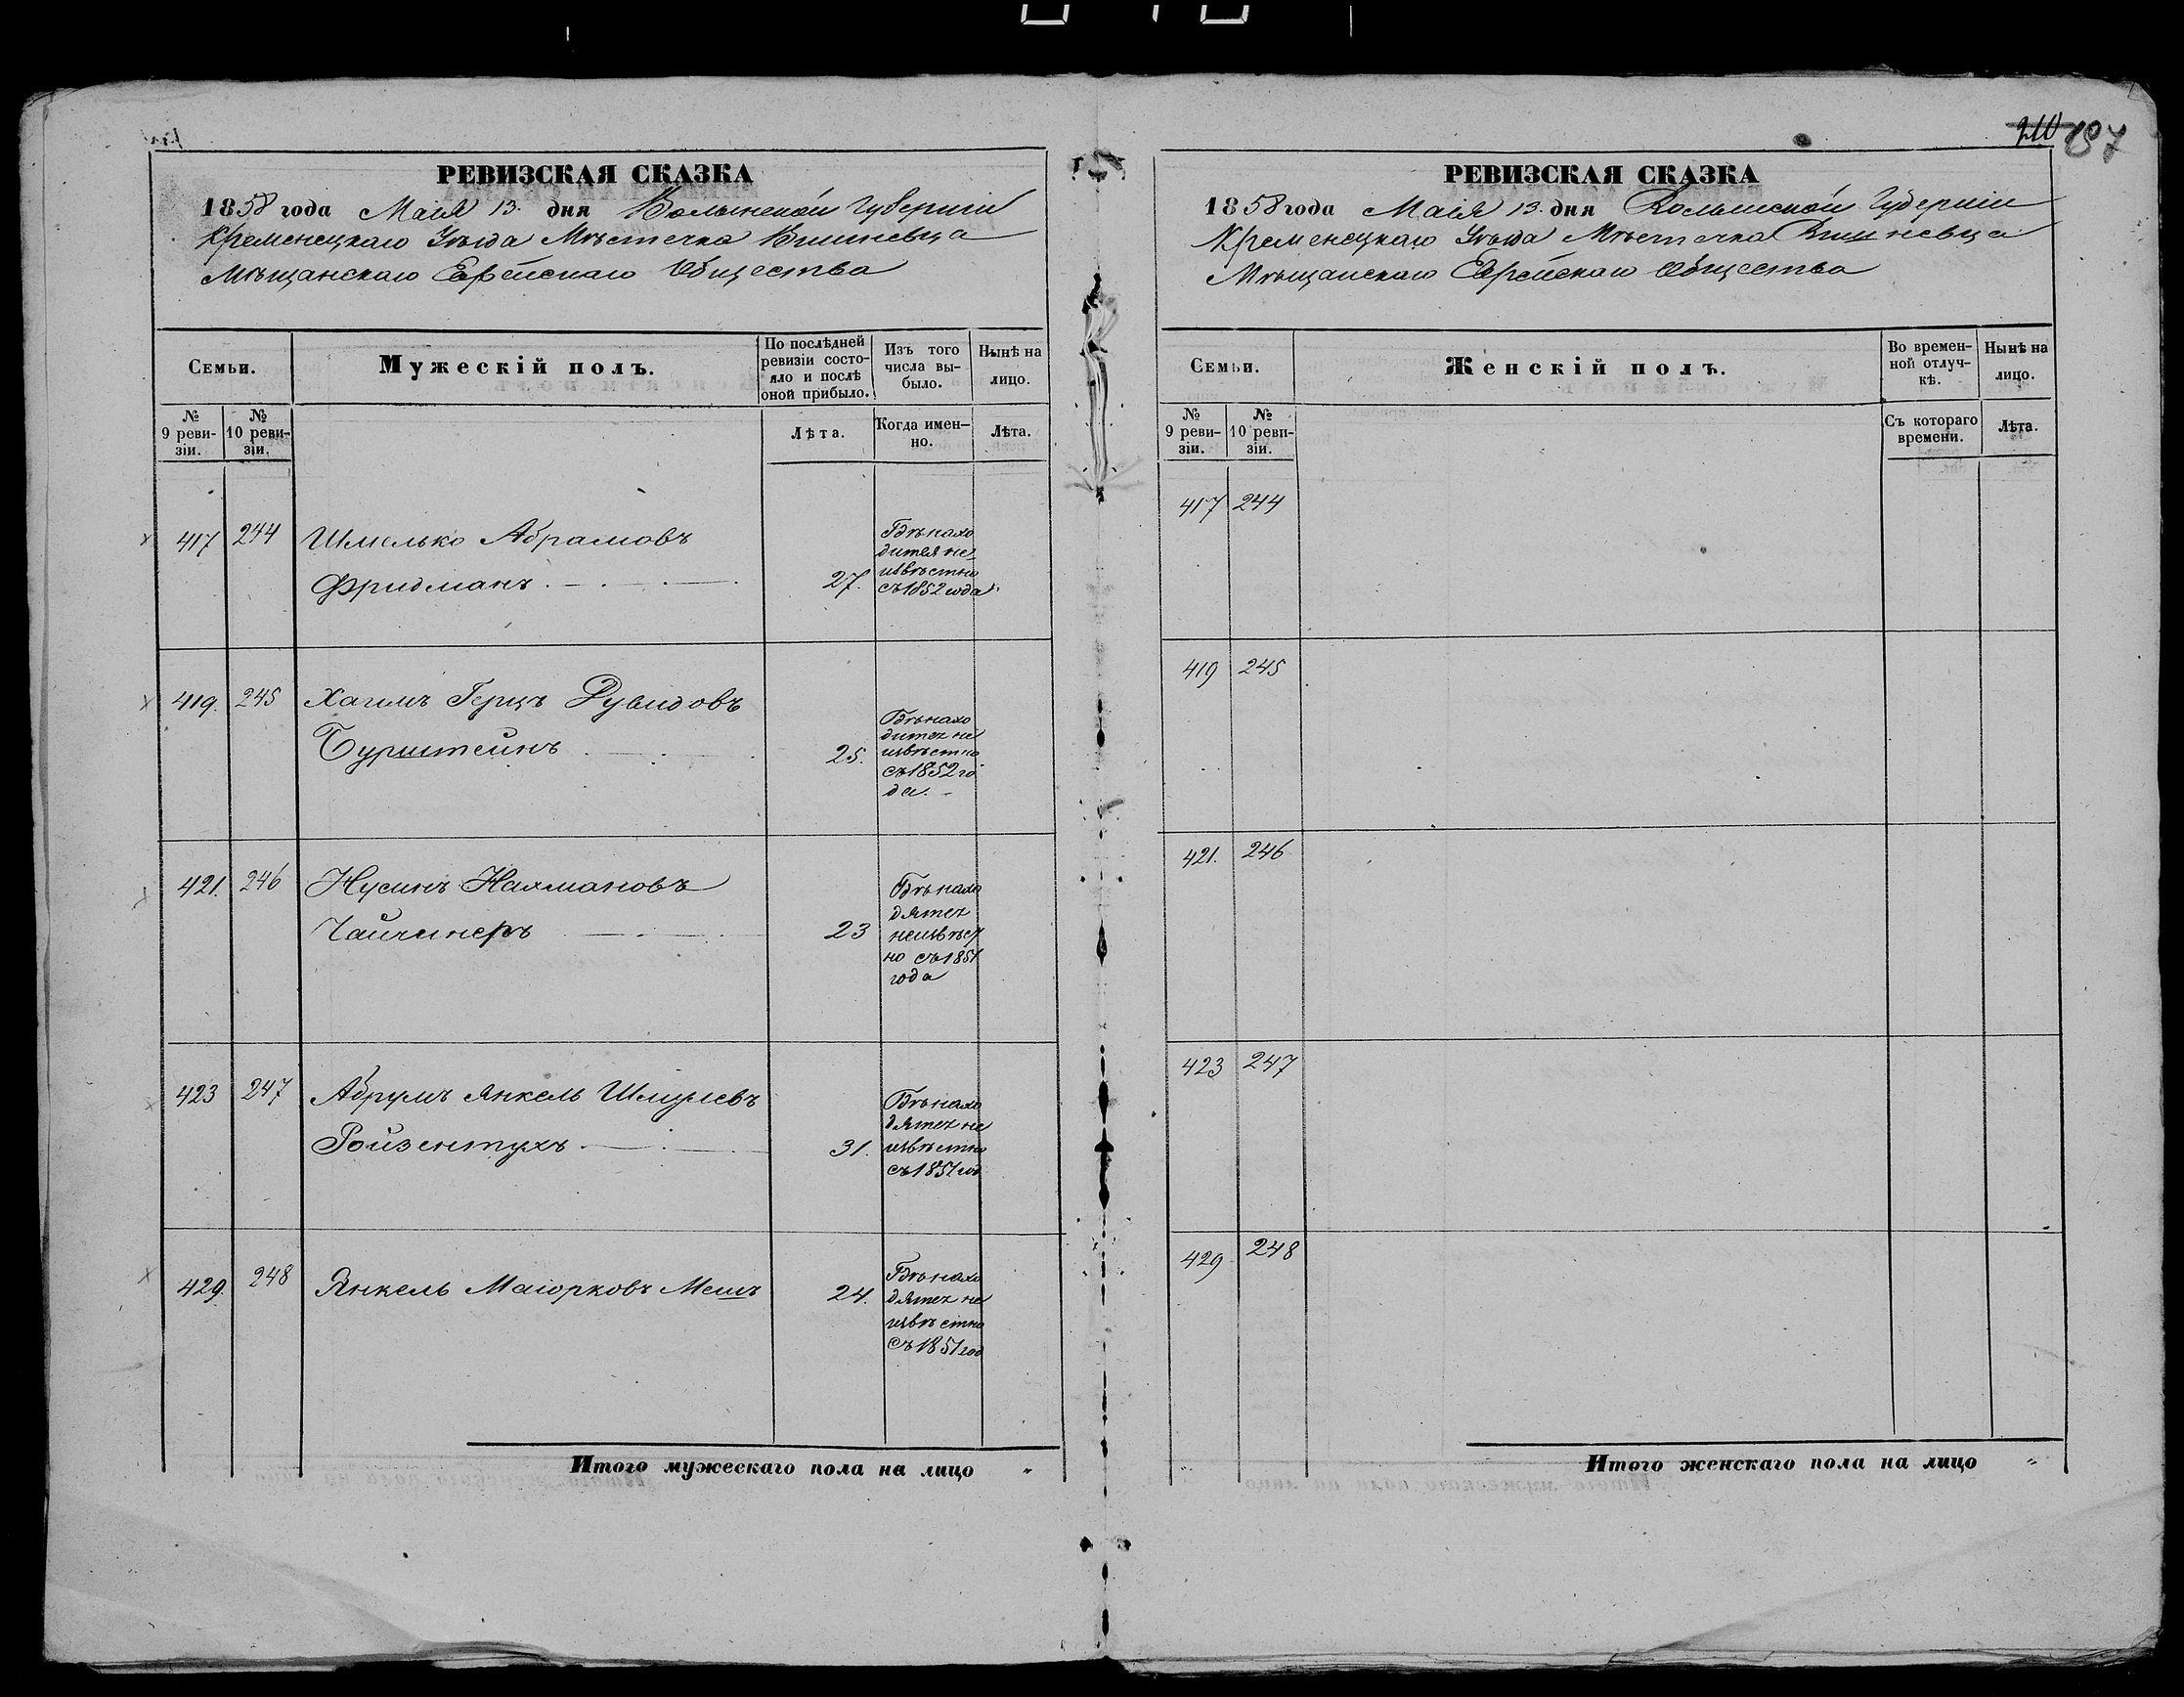 РЕВИЗСКАЯ СКАЗКА
1858 года Маія 13. дня Волынской Губерніи
Кременецкаго Уѣзда Мѣстечка Вишневца
Мѣщанскаго Еврейскаго Общества
Семьи.
Мужескій полъ.
По послѣдней
ревизіи состо-
яло и послѣ
оной прибыло.
Изъ того
числа вы-
было.
Нынѣ на
лицо.
№
9 реви-
зіи.
№
10 реви-
зіи.
Лѣта.
Когда имен-
но.
Лѣта.
417 244 Шмелько Абрамовъ
Фридманъ 27.
Гдѣ нахо
дится не
извѣстно
съ 1852 года
419. 245 Хаимъ Герцъ Дувидовъ
Бурштейнъ 25.
Гдѣ нахо
дитсz не
извѣстно
съ 1852 го
да.
421. 246 Нусинъ Нахмановъ
Чайчинеръ 23
Гдѣ нахо
дятсz
неизвѣст
но съ 1851
года
423 247 Абрумъ Янкель Шмулевъ
Ройзентухъ 31.
Гдѣ нахо
дятсz не
извѣстно
съ 1851 год
429. 248 Янкель Маіорковъ Мешъ 24.
Гдѣ нахо
дятсz не
извѣстно
съ 1851 год
Итого мужескаго пола на лицо "
210 187
РЕВИЗСКАЯ СКАЗКА
1858 года Маія 13. дня Волынской Губерніи
Кременецкаго Уѣзда Мѣстечка Вишневца
Мѣщанскаго Еврейскаго Общества
Семьи.
Женскій полъ.
Во времен-
ной отлуч-
кѣ.
Нынѣ на
лицо.
№
9 реви-
зіи.
№
10 реви-
зіи.
Съ котораго
времени.
Лѣта.
417 244
419 245
421. 246
423 247
429 248
Итого женскаго пола на лицо "